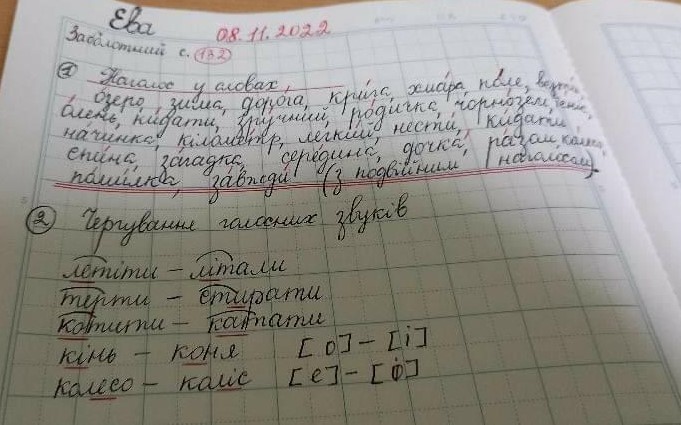 Ева
08.11.2022
Заболотний с. 132
1 Наголос у словах,
озеро, зима, дорога, крига, хмара, поле,
олень, кидати, зручний, родичка, чорнозем,
начинка, кілометр, легкий нести, кидати,
спина, загадка, середина, дочка, разом, колесо,
помилка, завжди (з подвійним наголосом).
2 Чергування голосних звуків
летіти – літали
терти – стирати
котити – катати
кінь – коня [о] – [і]
колесо – коліс [е] – [і]